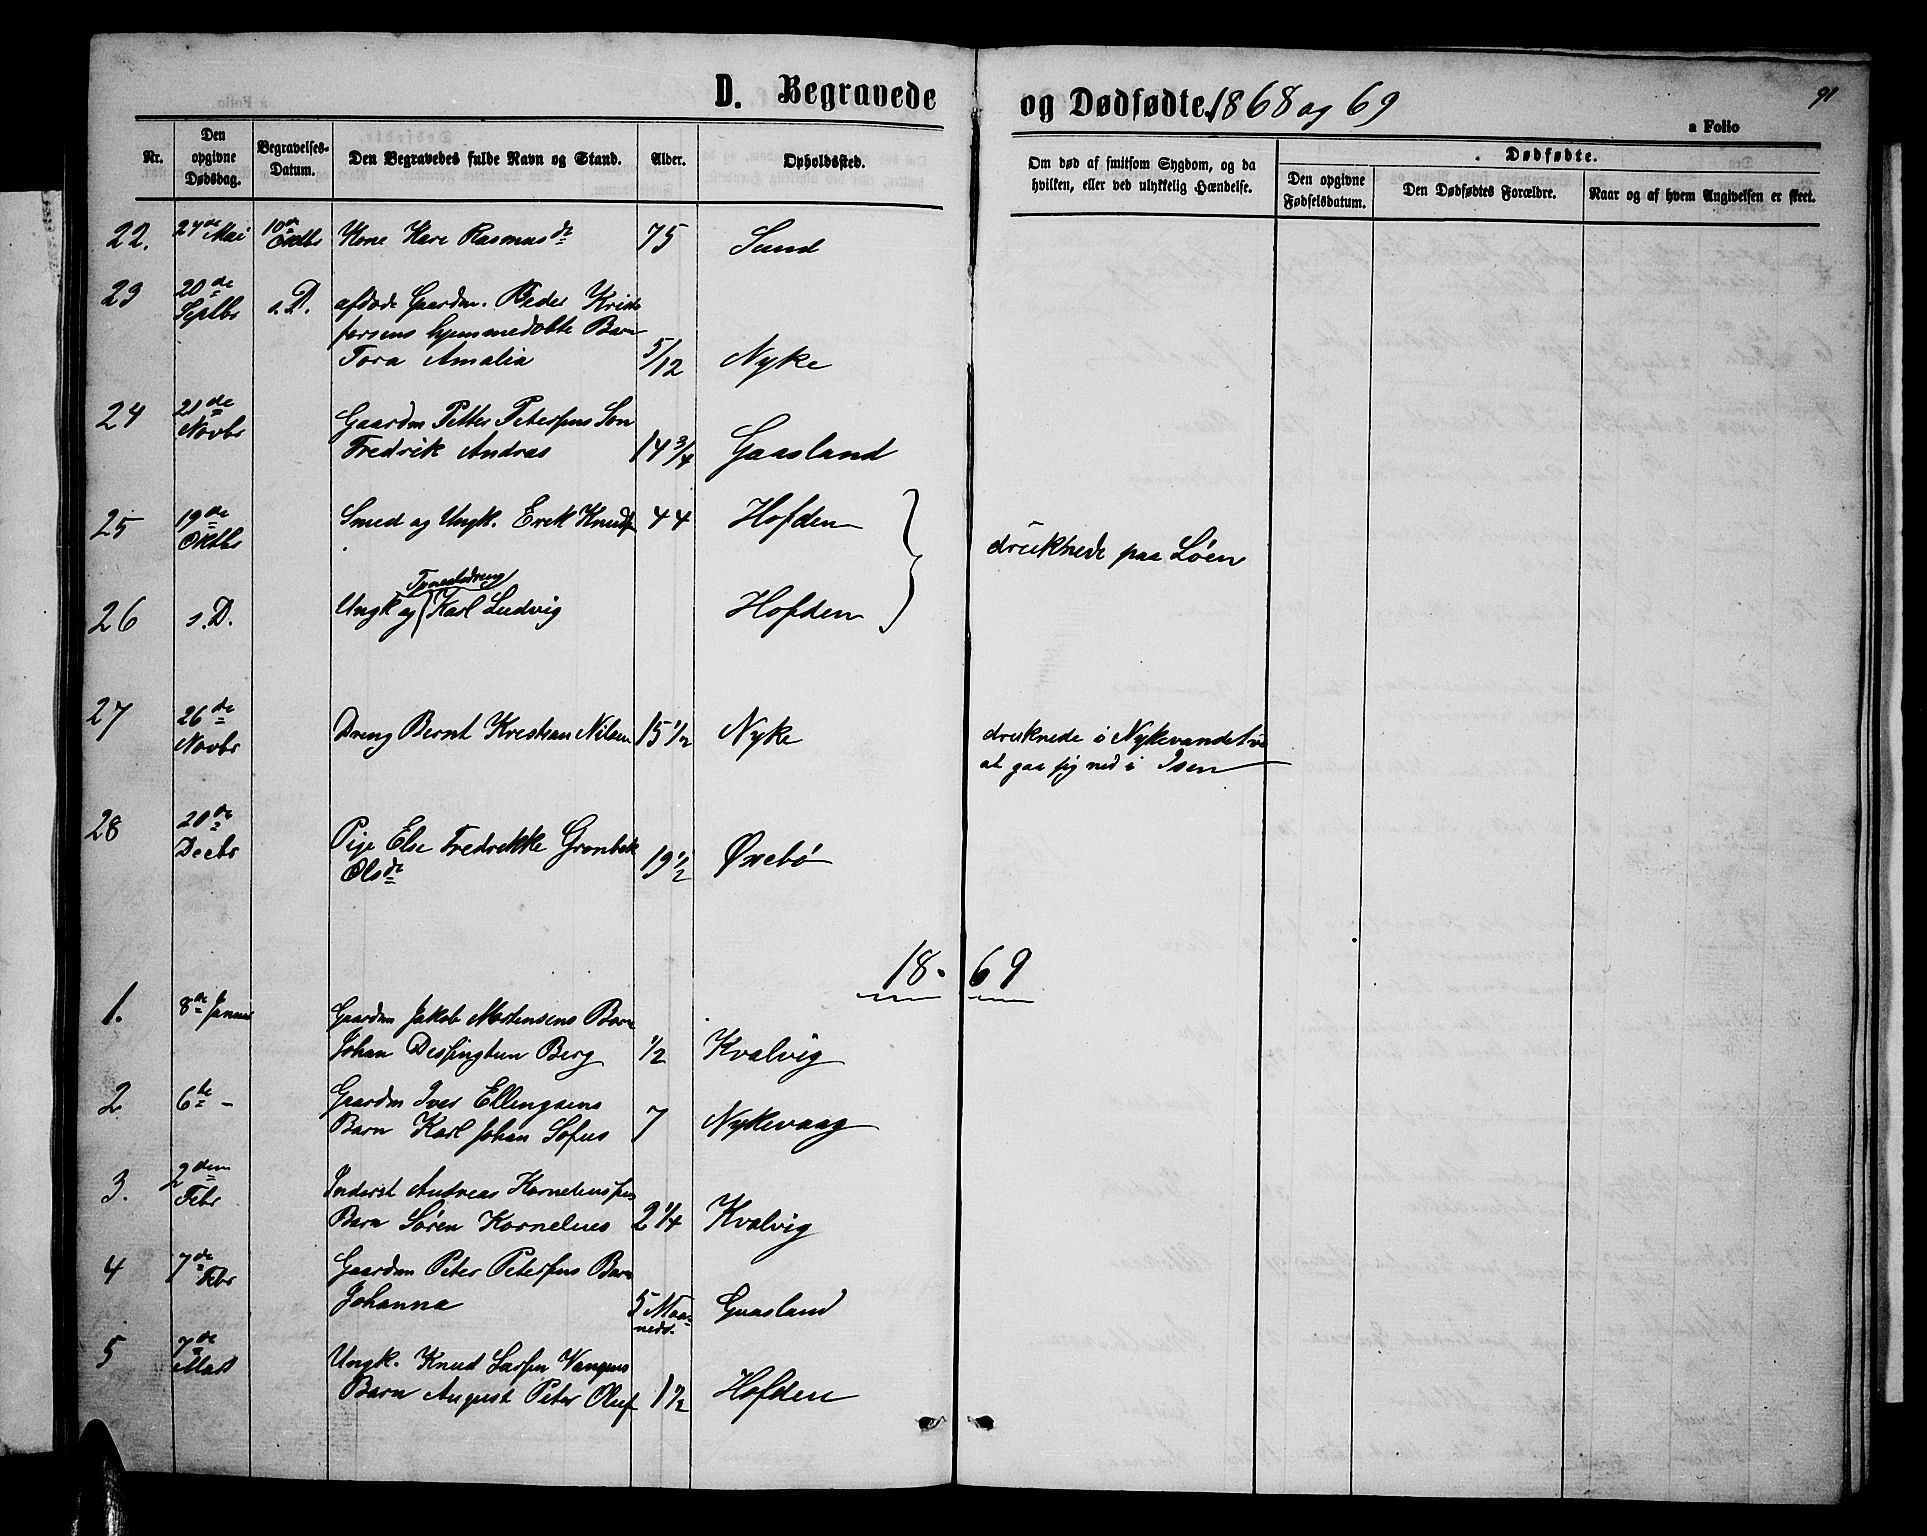 D. Begravede og Dødfødte. 1868 og 69
91
a Folio
Nr.
Den opgivne Dødsdag.
Begravelses-Datum.
Den Begravedes fulde Navn og Stand.
Alder.
Opholdssted.
Om død af smitsom Sygdom, og da
hvilken, eller ved ulykkelig Hændelse.
Dødfødte.
Den opgivne Fødselsdatum.
Den Dødfødtes Forældre.
Naar og af hvem Angivelsen er skeet.
22. 24de Mai 10de Oktbr Kone Kare Rasmusdr 75 Sund
23 20de Septbr s.D. afdøde Gaardm. Peder Kristo
fersens hjemmedøbte Barn
Tora Amalia 5/12 Nyke
24 21de Novbr Gaardm Petter Petersens Søn
Fredrik Andras 14 3/4 Gaasland
25 19de Oktbr Smed og Ungk. Erek Knuds 44 Hofden
druknede paa Søen
26 s.D. Ungk og Tjenestedreng Karl Ludvig Hofden
27 26de Novbr Dreng Bernt Kristian Nilsen 15 1/2 Nyke druknede i Nykevandet ve
at gaa sig ned i Isen
28 20de Decbr Pige Else Fredrekke Grønbek
Olsdr 19 1/2 Øxebø
18. 69
1. 8de Januar Gaardm Jakob Mortensens Barn
Johan Berg 1/2 Kvalvig
2 6te - Gaardm Iver Ellingsens
Barn Karl Johan Sofus 7 Nykevaag
3. 2den Febr Inderst Andreas Korneliussens
Barn Søren Kornelius 2 1/4 Kvalvig
4 7de Febr Gaardm Peter Petersens Barn
Johanna 5 Maaneder Gaasland
5 7de Mart Ungk. Knud Larsen Vangens
Barn August Peter Oluf 1 1/2 Hofden